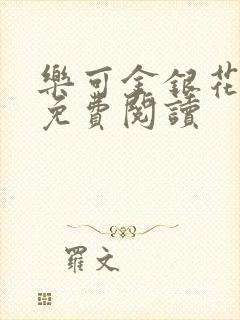 樂可金銀花
免費閱讀
羅文